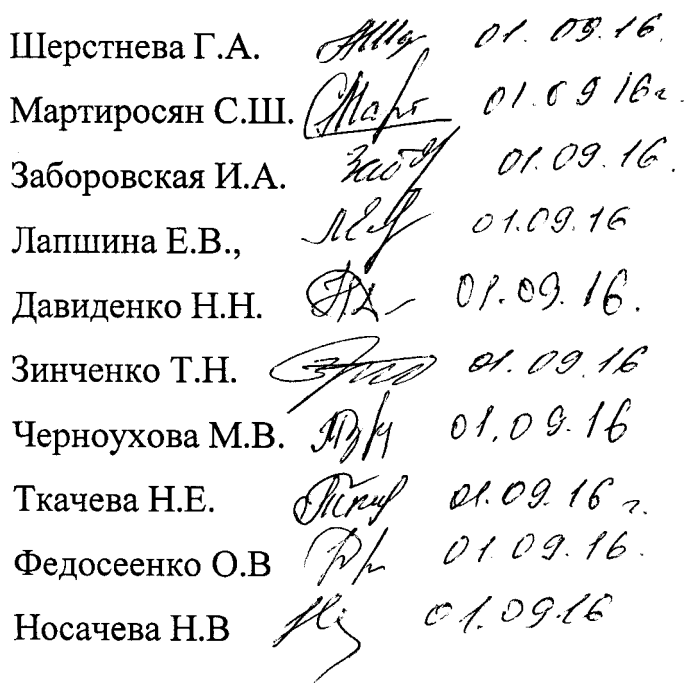 Шерстнева Г.А. 01.09.16.
Мартиросян С.Ш. Март 01.09 16г.
Заборовская И.А. 01.09.16.
Лапшина Е.В., 01.09.16
Давиденко Н.Н. 01.09.16.
Зинченко Т.Н. 01.09.16
Черноухова М.В. 01.09.16
Ткачева Н.Е. 01.09.16 г.
Федосеенко О.В 01.09.16.
Носачева Н.В 01.09.16